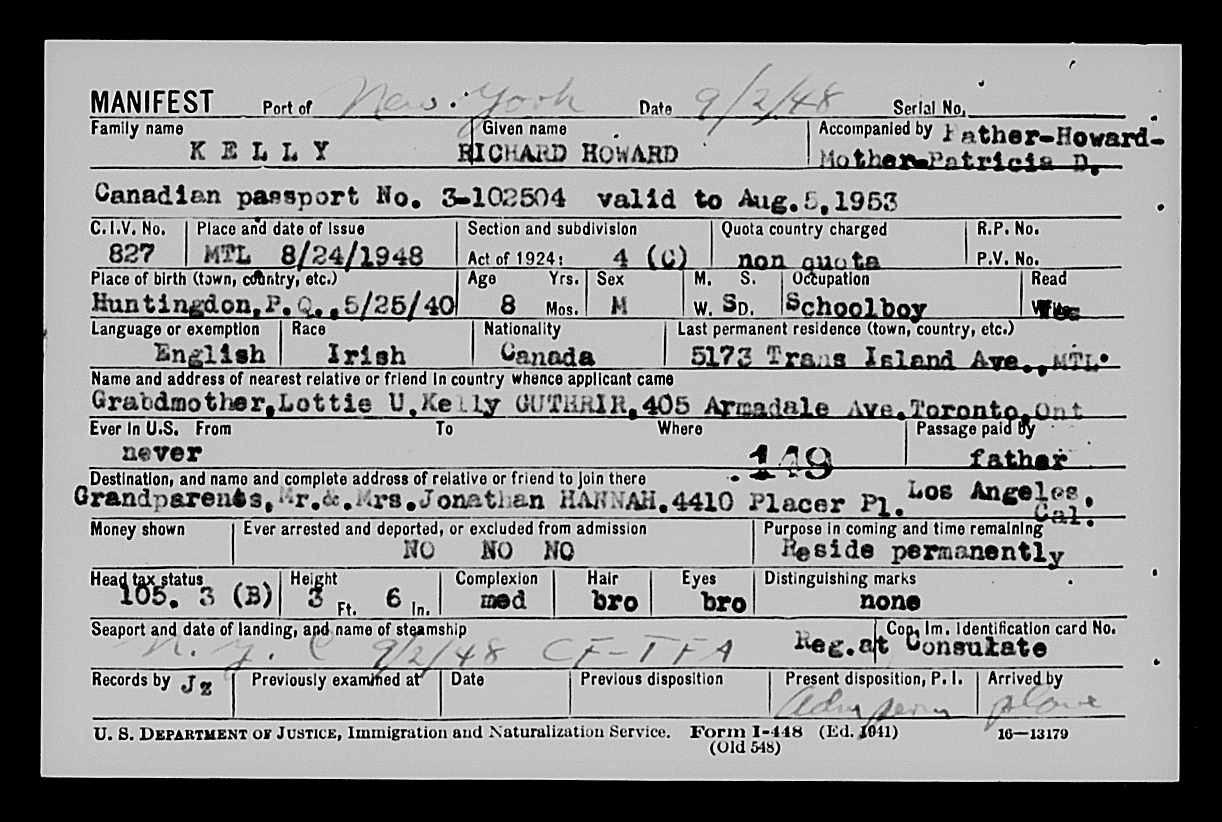 MANIFEST Port of New York Date 9/2/48 Serial No.
Family name Given name Accompanied by Father-Howard-
KELLY RICHARD HOWARD Mother-Patricia D.
Canadian passport No. 3-102504 valid to Aug.5,1953
C.I.V. No. Place and date of issue Section and subdivision Quota country charged R.P. No.
827 MTL 8/24/1948 Act of 1924: 4 (C) non quota P.V. No.
Place of birth (town, country, etc.) Age Yrs. Sex M. S. Occupation Read
Huntingdon,P.Q.,5/25/40 8 Mos. M W. SD. Schoolboy Yes
Language or exemption Race Nationality Last permanent residence (town, country, etc.)
English Irish Canada 5173 Trans Island Ave.,MTL.
Name and address of nearest relative or friend in country whence applicant came
Grabdmother,Lottie U.Kelly GUTHRIR,405 Armadale Ave.Toronto,Ont
Ever in U.S. From To Where Passage paid by
never 149 father
Destination, and name and complete address of relative or friend to join there
Grandparents,Mr.&.Mrs.Jonathan HANNAH.4410 Placer Pl. Los Angeles,
Cal.
Money shown Ever arrested and deported, or excluded from admission Purpose in coming and time remaining
NO NO NO Reside permanently
Head tax status Height Complexion Hair Eyes Distinguishing marks
105. 3 (B) 3 Ft. 6 In. med bro bro none
Seaport and date of landing, and name of steamship Cop. Im. Identification card No.
N.Y.C 9/2/48 CF-TFA Reg.at Consulate
Records by Jz Previously examined at Date Previous disposition Present disposition, P. I. Arrived by
Adm perm plane
U. S. DEPARTMENT OF JUSTICE, Immigration and Naturalization Service. Form I-448 (Ed. 1941) 16—13179
(Old 548)